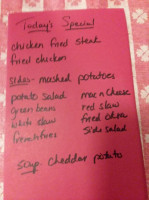 Today's Special
chicken fried steak
fried chicken
Sides - mashed potatoes
potato salad   mac n cheese
green beans   red slaw
white slaw   fried okra
french fries   side salad
soup - cheddar potato